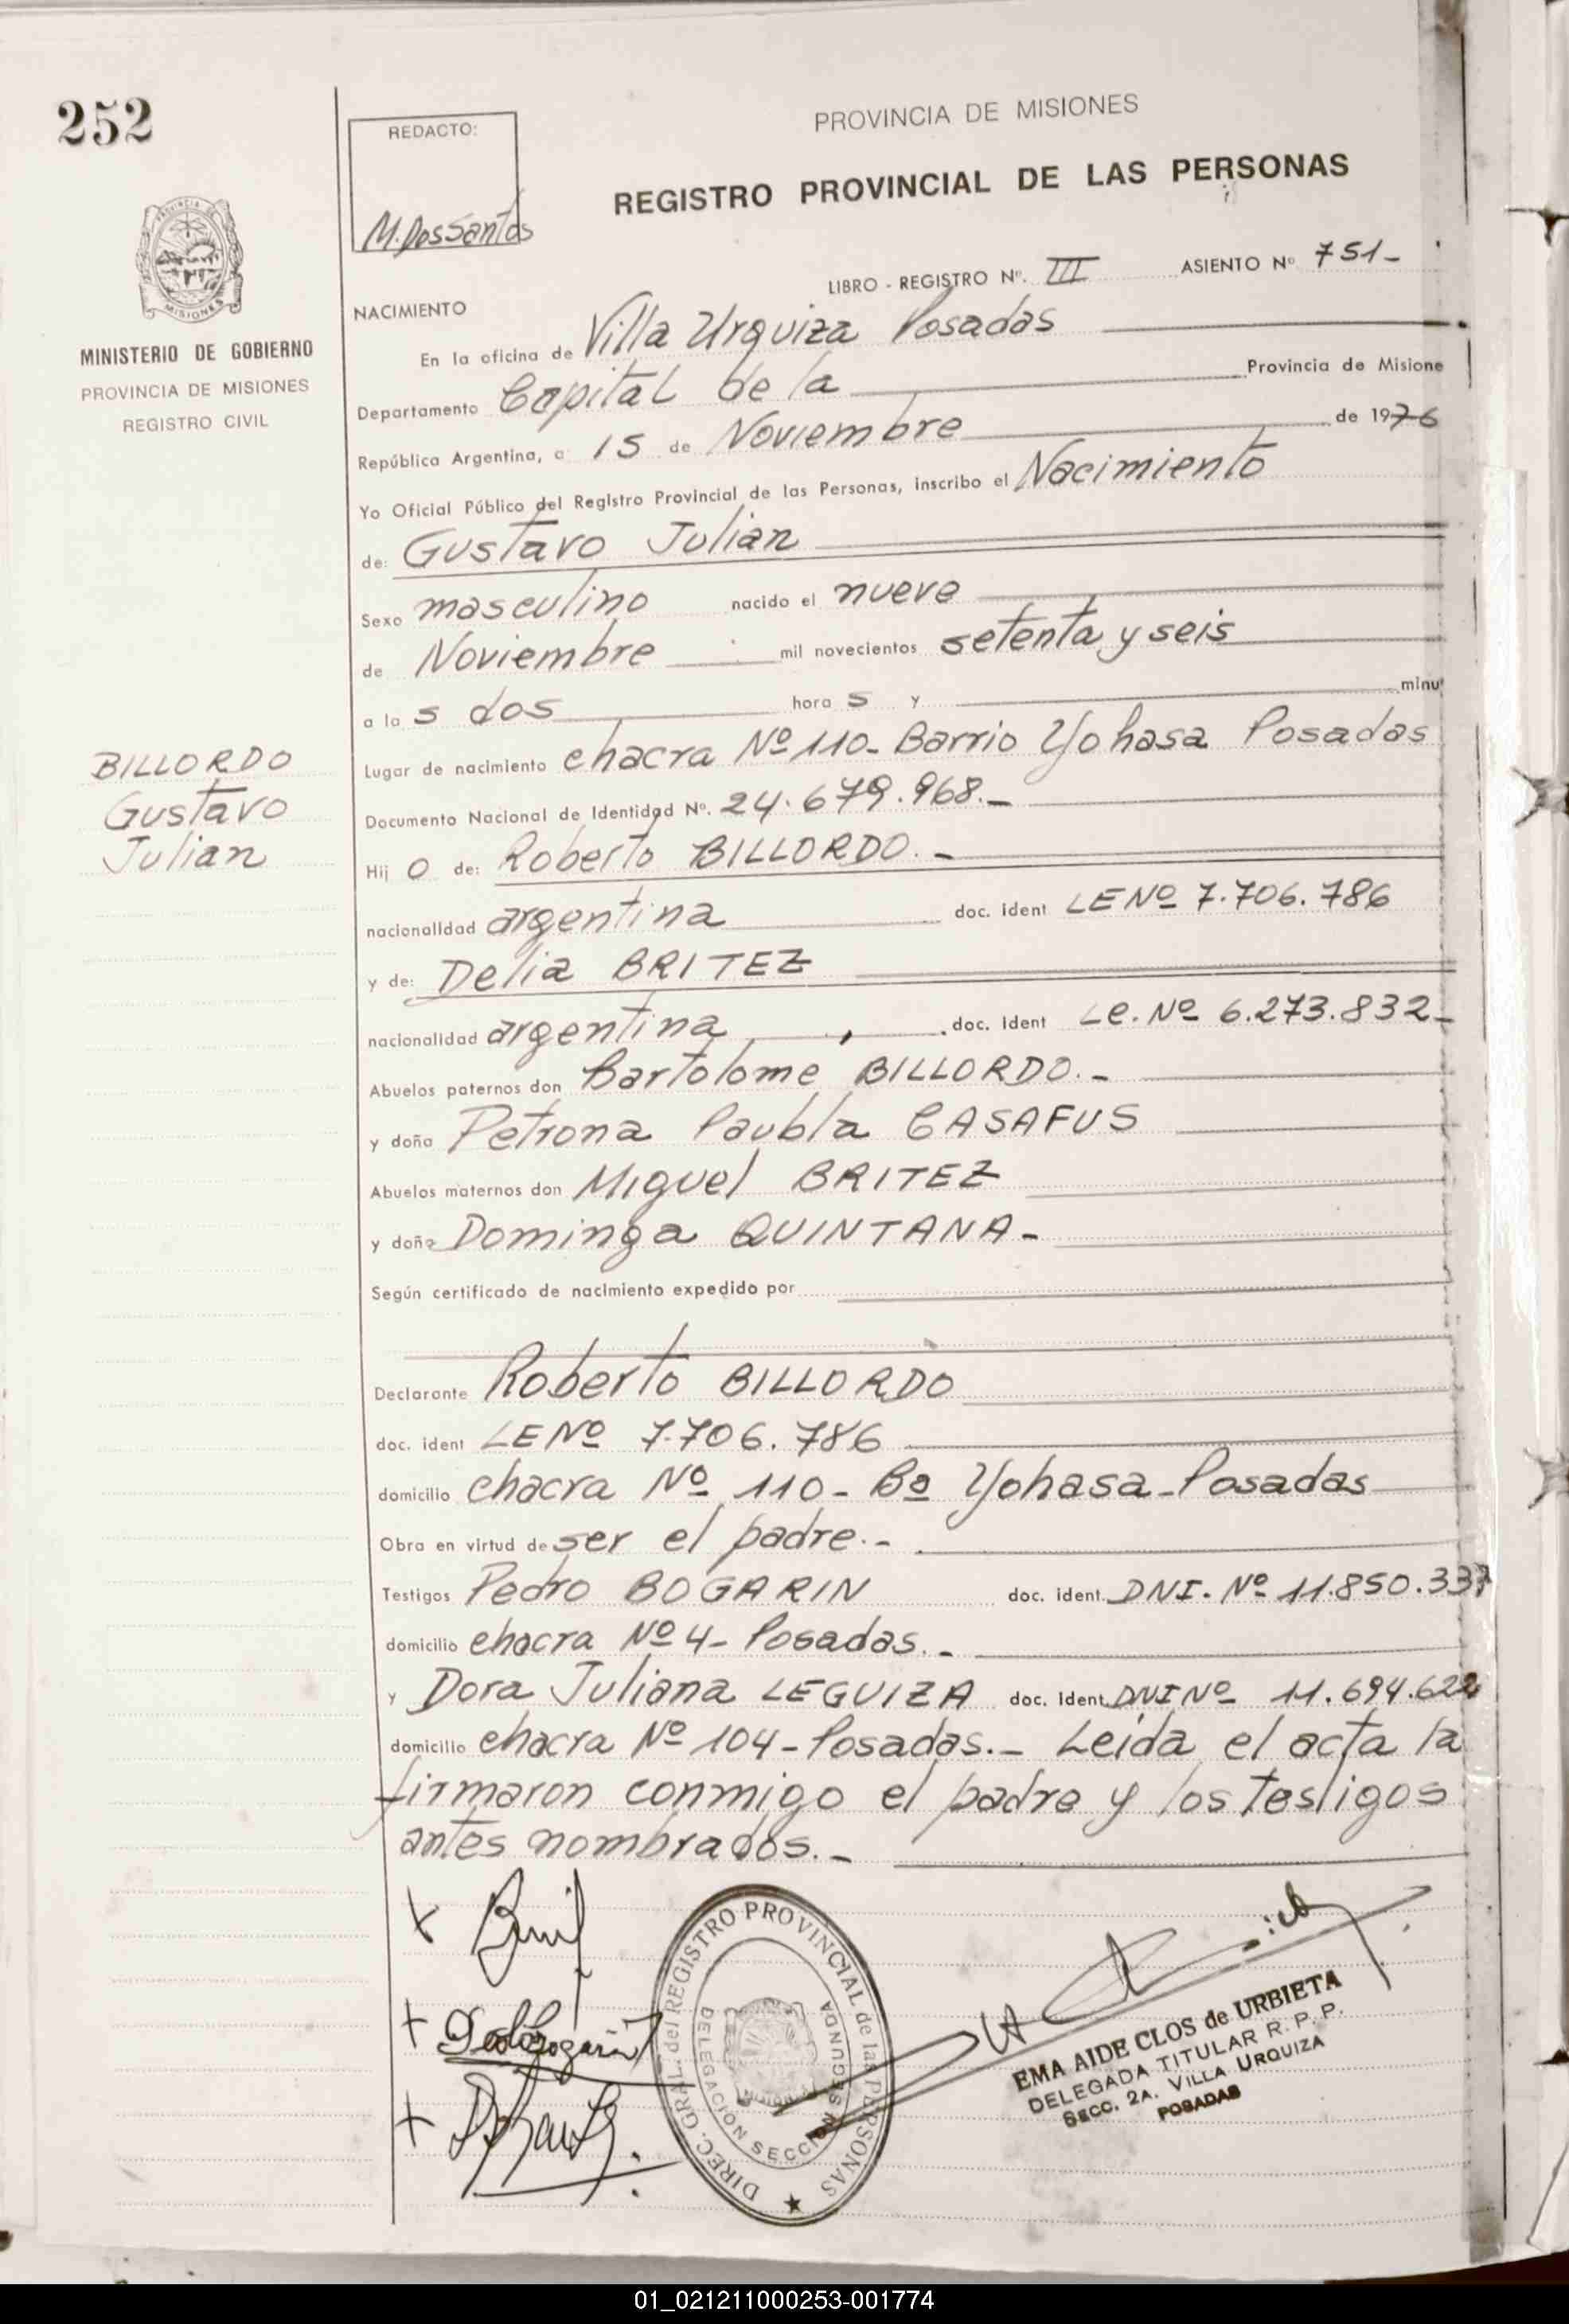 252
REDACTO:
M. Dos Santos
PROVINCIA DE MISIONES
REGISTRO PROVINCIAL DE LAS PERSONAS
MISIONES
MINISTERIO DE GOBIERNO
PROVINCIA DE MISIONES
REGISTRO CIVIL
LIBRO - REGISTRO Nº. III ASIENTO Nº 751-
NACIMIENTO
En la oficina de Villa Urquiza Posadas
Departamento Capital de la Provincia de Misione
República Argentina, a 15 de Noviembre de 1976
Yo Oficial Público del Registro Provincial de las Personas, inscribo el Nacimiento
de: Gustavo Julian
Sexo masculino nacido el nueve
de Noviembre mil novecientos setenta y seis
a la s dos hora s y minu
Lugar de nacimiento chacra Nº 110- Barrio Yohasa Posadas
BILLORDO
Gustavo
Julian
Documento Nacional de Identidad Nº. 24.679.968.-
Hij o de: Roberto BILLORDO.-
nacionalidad argentina doc. ident LE Nº 7.706.786
y de: Delia BRITEZ
nacionalidad argentina, doc. ident Le. Nº 6.273.832-
Abuelos paternos don Bartolome BILLORDO.-
y doña Petrona Paubla CASAFUS
Abuelos maternos don Miguel BRITEZ
y doña Dominga QUINTANA-
Según certificado de nacimiento expedido por
Declarante Roberto BILLORDO
doc. ident LE Nº 7.706.786
domicilio chacra Nº 110- Bº Yohasa-Posadas
Obra en virtud de ser el padre.-
Testigos Pedro BOGARIN doc. ident. DNI. Nº 11.850.337
domicilio chacra Nº 4- Posadas.-
y Dora Juliana LEGUIZA doc. ident. DNI Nº 11.694.622
domicilio chacra Nº 104-Posadas.- Leida el acta la
firmaron conmigo el padre y los testigos
antes nombrados.-
DIREC. GRAL. del REGISTRO PROVINCIAL de las PERSONAS
DELEGACION SECCION SEGUNDA
EMA AIDE CLOS de URBIETA
DELEGADA TITULAR R. P. P.
SECC. 2A. VILLA URQUIZA
POSADAS
01_021211000253-001774